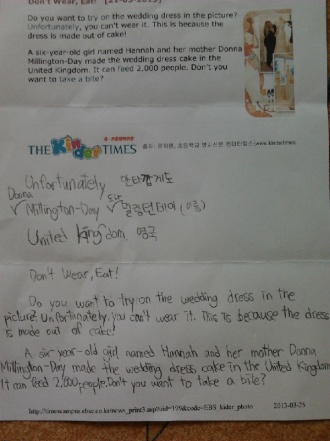 Don't Wear, Eat!
Do you want to try on the wedding dress in the picture?
Unfortunately, you can't wear it. This is because the
dress is made out of cake!
A six-year-old girl named Hannah and her mother Donna
Millington-Day made the wedding dress cake in the
United Kingdom. It can feed 2,000 people. Don't you
want to take a bite?
THE Kinder TIMES
Unfortunately 안타깝게도
Donna 도나
Millington-Day 밀링턴데이 (이름)
United Kingdom 영국
Don't Wear, Eat!
Do you want to try on the wedding dress in the
picture? Unfortunately, you can't wear it. This is because the dress
is made out of cake!
A six-year-old girl named Hannah and her mother Donna
Millington-Day made the wedding dress cake in the United Kingdom.
It can feed 2,000 people. Don't you want to take a bite?
2013-03-25